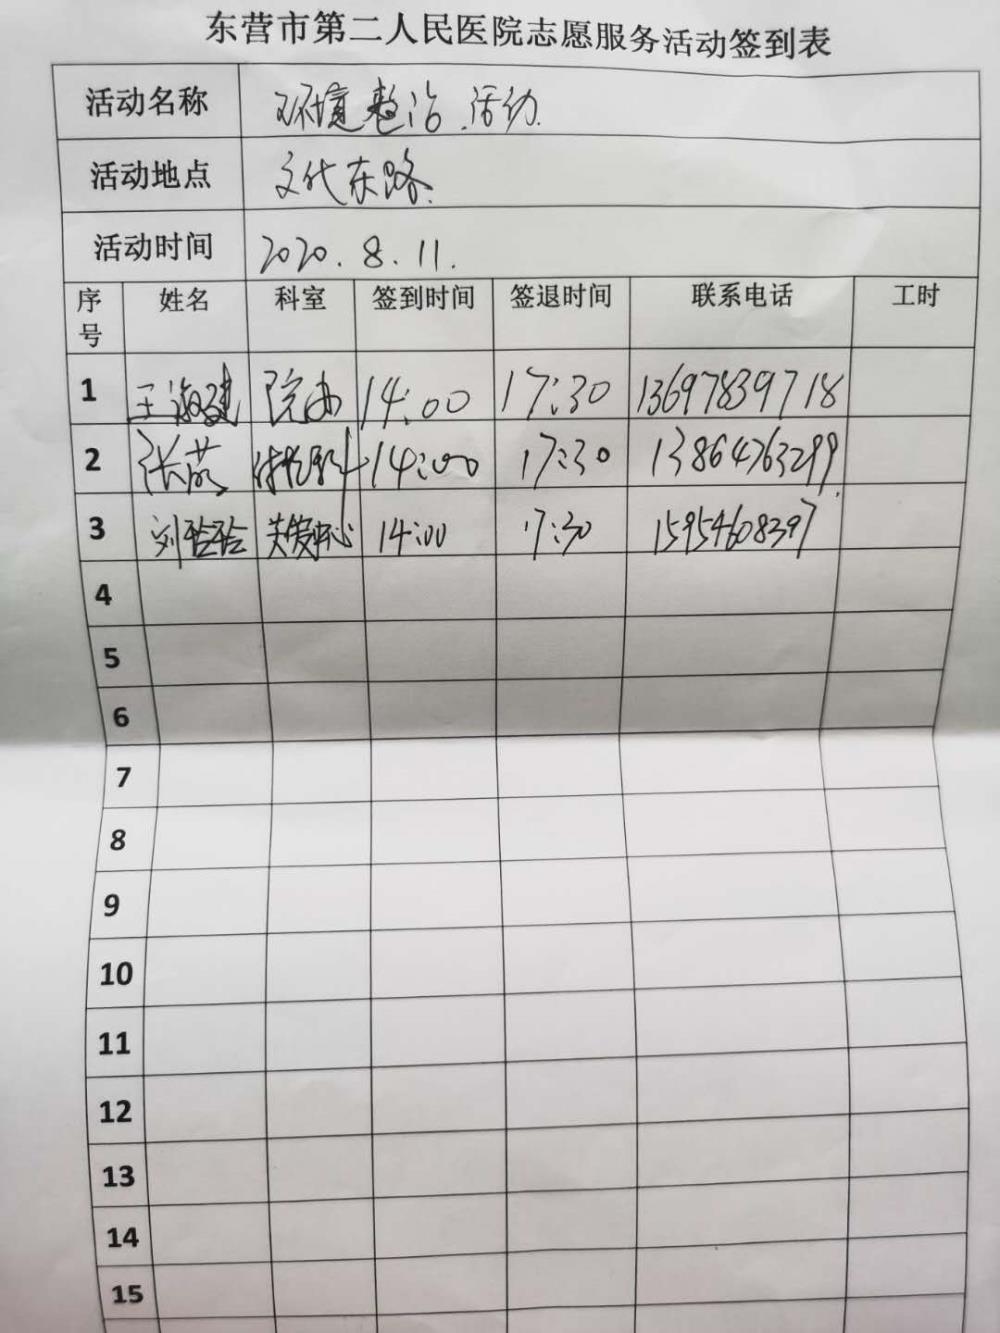 东营市第二人民医院志愿服务活动签到表
活动名称 环境整治.活动.
活动地点 文化东路.
活动时间 2020.8.11.
序号 姓名 科室 签到时间 签退时间 联系电话 工时
1 王海建 院办 14:00 17:30 13697839718
2 张 14:00 17:30 13864763299
3 刘 14:00 17:30 15954608397
4
5
6
7
8
9
10
11
12
13
14
15